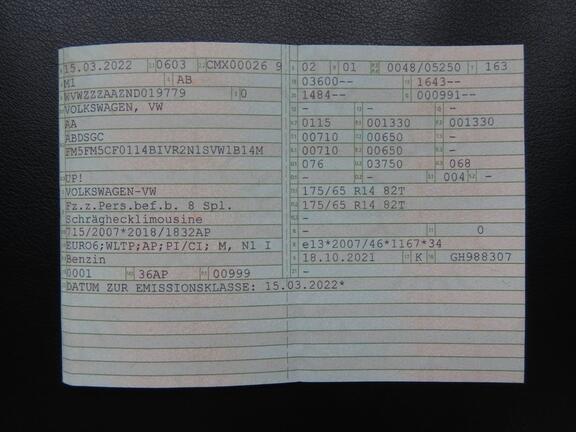 15.03.2022 0603 CMX00026 9
M1 AB
WVWZZZAAZND019779 0
VOLKSWAGEN, VW
AA
ABDSGC
FM5FM5CF0114BIVR2N1SVW1B14M
UP!
VOLKSWAGEN-VW
Fz.z.Pers.bef.b. 8 Spl.
Schräghecklimousine
715/2007*2018/1832AP
EURO6;WLTP;AP;PI/CI; M, N1 I
Benzin
0001 36AP 00999
DATUM ZUR EMISSIONSKLASSE: 15.03.2022*
02 01 0048/05250 163
03600-- 1643--
1484-- 000991--
- - -
0115 001330 001330
00710 00650 -
00710 00650 -
076 03750 068
- - 004 -
175/65 R14 82T
175/65 R14 82T
-
- 0
e13*2007/46*1167*34
18.10.2021 K GH988307
-